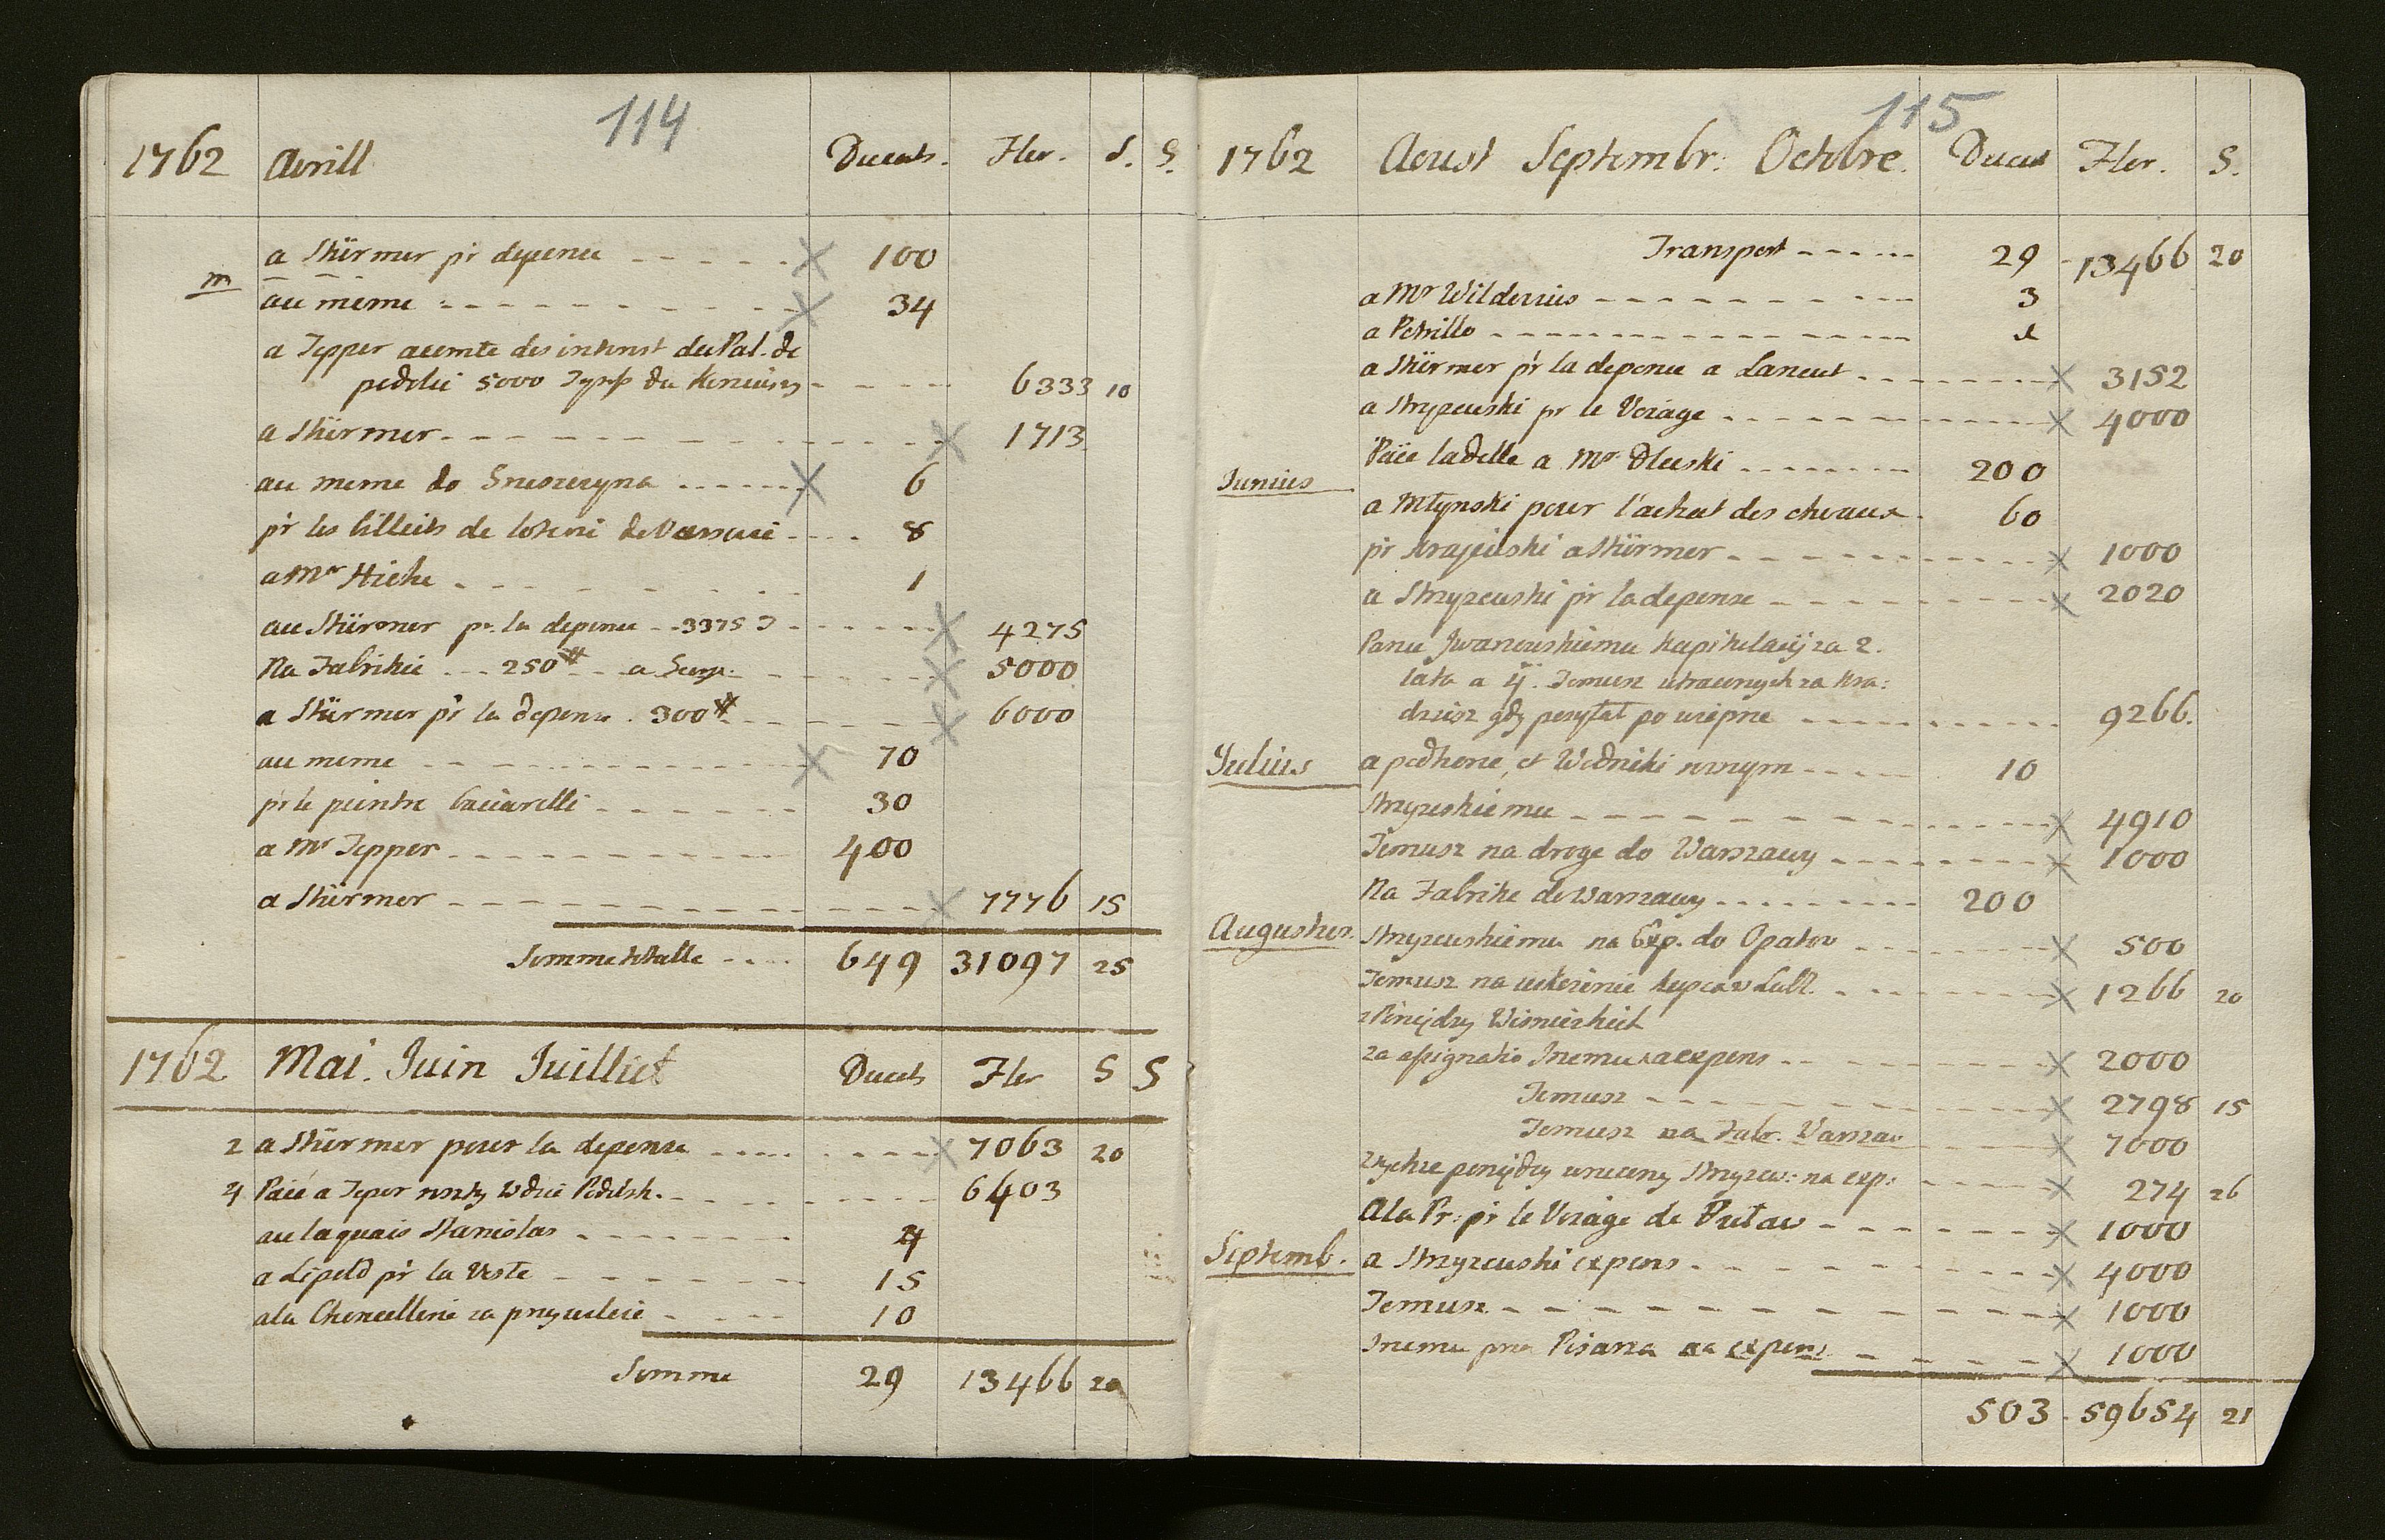 114
1762 Avrill Ducats. Flor. S. S.
a Stürmer pr depence 100
m au meme 34
a Tepper acomte des interest du Pal. de
podolie 5000 6333 10
a Stürmer 1713
au meme do 6
pr les billiets de loterie de Varsovie 8
a Mr Hicke 1
au Stürmer pr. la depence 3375 4275
Na Fabrikie 250# a 5000
a Stürmer pr la depense . 300# 6000
au meme 70
pr le peintre Baciarelli 30
a Mr Tepper 400
a Stürmer 7776 15
Somme totalle 649 31097 25
1762 Mai. Juin Juilliet Ducats Flor S S
2 a Stürmer pour la depense 7063 20
4 Païé a Teper Wdzie Podolsk. 6403
au laquais Stanislas 4
a Lepold pr la Veste 15
a la Chancellerie za przywileie 10
Somme 29 13466 20
115
1762 Aoust Septembr: Octobre. Ducat Flor. S.
Transport 29 13466 20
a Mr Wildenius 3
a Petrillo 1
a Stürmer pr la depence a Lancut 3152
a Stryzewski pr le Voiage 4000
Junius Païé la dette a Mr Dluski 200
a Młynski pour l'achat des chevaux 60
pr Krajewski a Stürmer 1000
a Strzyzewski pr la depense 2020
Panu Jwanowskiemu kapitulacij za 2.
lata a 4. Temusz za kra:
dzisz gdy posyłał po 9266.
Julius a podkone, et Wodniki 10
Strzyzeskiemu 4910
Temusz na droge do Warszawy 1000
Na Fabrike do Warszawy 200
Augustus. Strzyzewskiemu na Exp. do Opatow 500
Temusz na kupcow Lubl. 1266 20
z Pinijdzy
za assignatio Jnemu na expens 2000
Temusz 2798 15
Temusz na Fabr. Warszaw 7000
z tychze penijdzy Strzyzew: na exp: 274 26
A la Pr: pr le Voiage de Puław 1000
Septemb. a Strzyzewski expens 4000
Temusz 1000
Jnemu Pisarza na expens 1000
503 59654 21